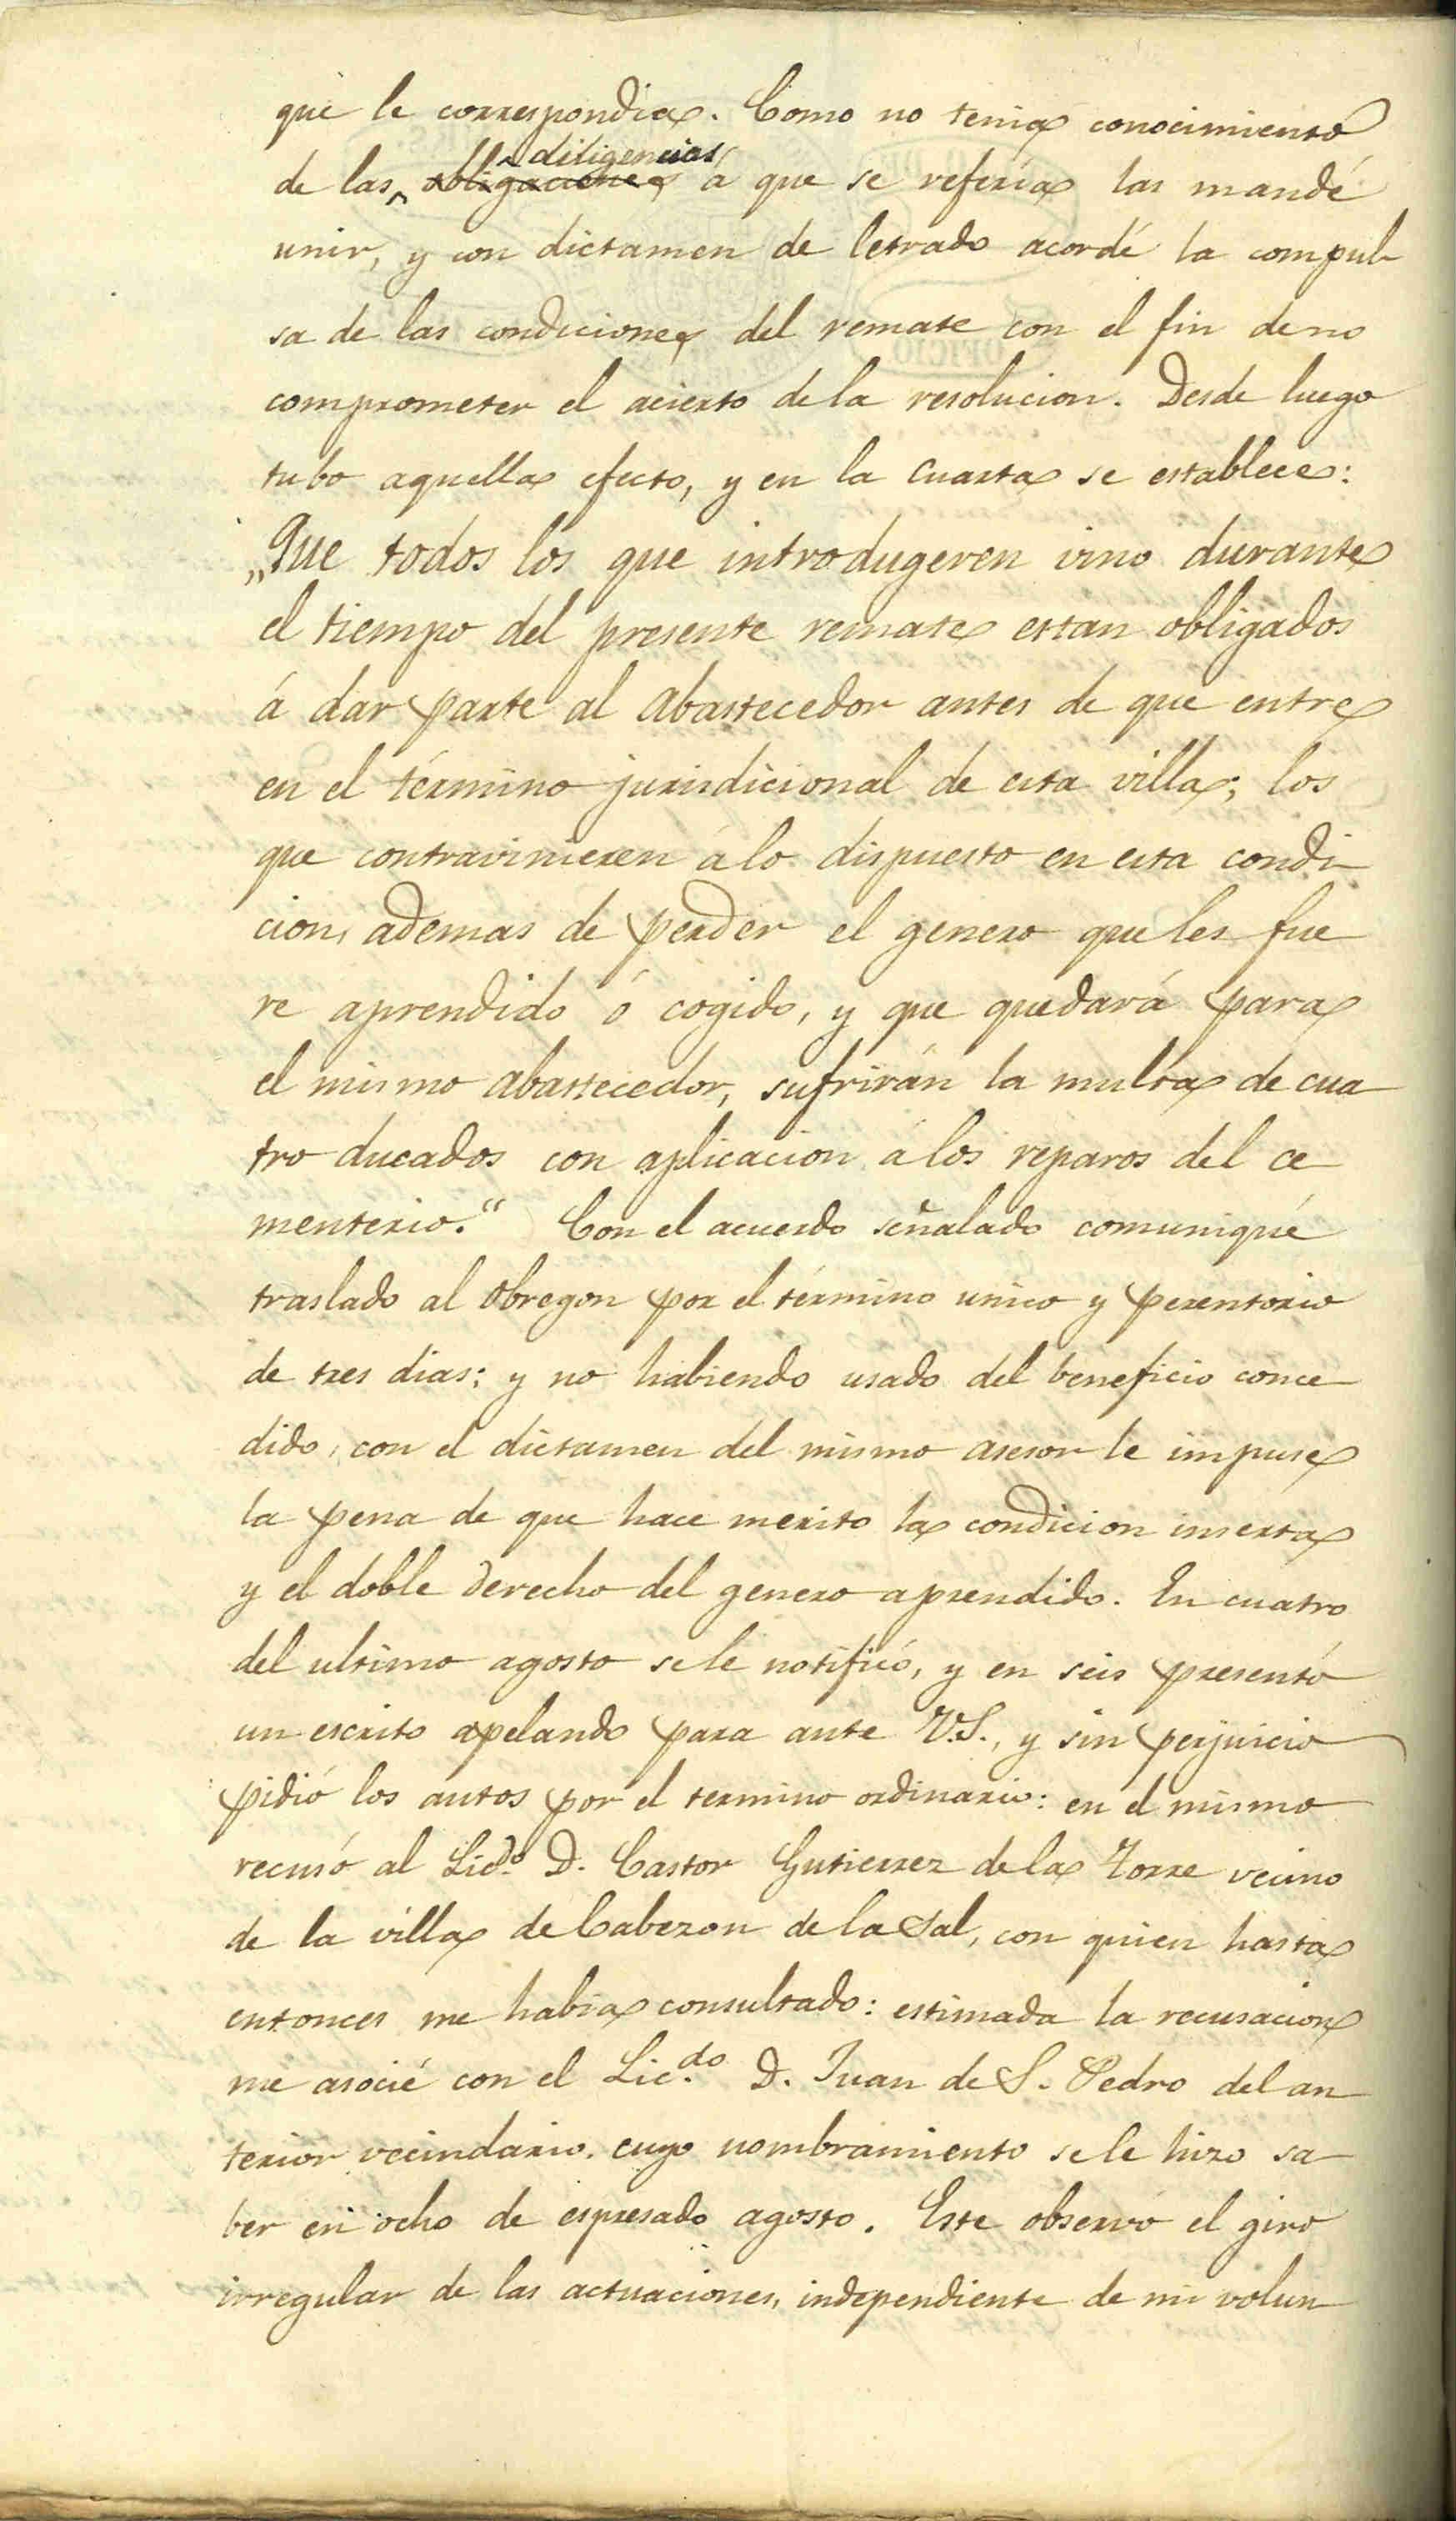 que le correspondia. Como no tenia conocimiento
de las ^diligencias^ ~~obligaciones~~ á que se referia las mandé
unir, y con dictamen de letrado acordé la compul-
sa de las condiciones del remate con el fin de no
comprometer el acierto de la resolucion. Desde luego
tubo aquella efecto, y en la cuarta se establece:
„Que todos los que introdugeren vino durante
el tiempo del presente remate estan obligados
á dar parte al abastecedor antes de que entre
en el término jurisdicional de esta villa; los
que contravinieren á lo dispuesto en esta condi-
cion, ademas de perder el genero que les fue
re aprendido ó cogido, y que quedará para
el mismo abastecedor, sufrirán la multa de cua
tro ducados con aplicacion á los reparos del ce
menterio.“ Con el acuerdo señalado comuniqué
traslado al Obregon por el término unico y perentorio
de tres dias; y no habiendo usado del beneficio conce
dido, con el dictamen del mismo asesor le impuse
la pena de que hace merito la condicion inserta
y el doble derecho del genero aprendido. En cuatro
del ultimo agosto se le notificó, y en seis presentó
un escrito apelando para ante V.S., y sin perjuicio
pidió los autos por el termino ordinario: en el mismo
recusó al Licdo. D. Castor Gutierrez de la Torre vecino
de la villa de Cabezon de la Sal, con quien hasta
entonces me habia consultado: estimada la recusacion
me asocié con el Lic.do D. Juan de S. Pedro del an
terior vecindario, cuyo nombramiento se le hizo sa
ber en ocho de espresado agosto. Este observó el giro
irregular de las actuaciones, independiente de mi volun